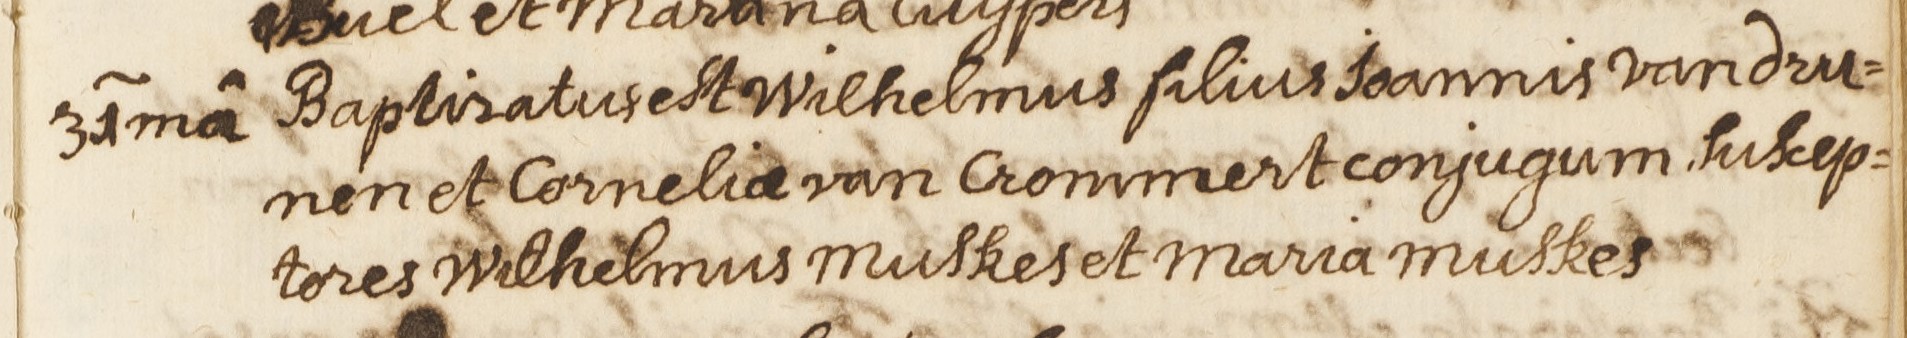 et Mariana Cuypers
31mâ Baptizatus est Wilhelmus filius Joannis van dru=
nen et Corneliæ van Crommert conjugum. Suscep=
tores Wilhelmus Muskes et Maria Muskes